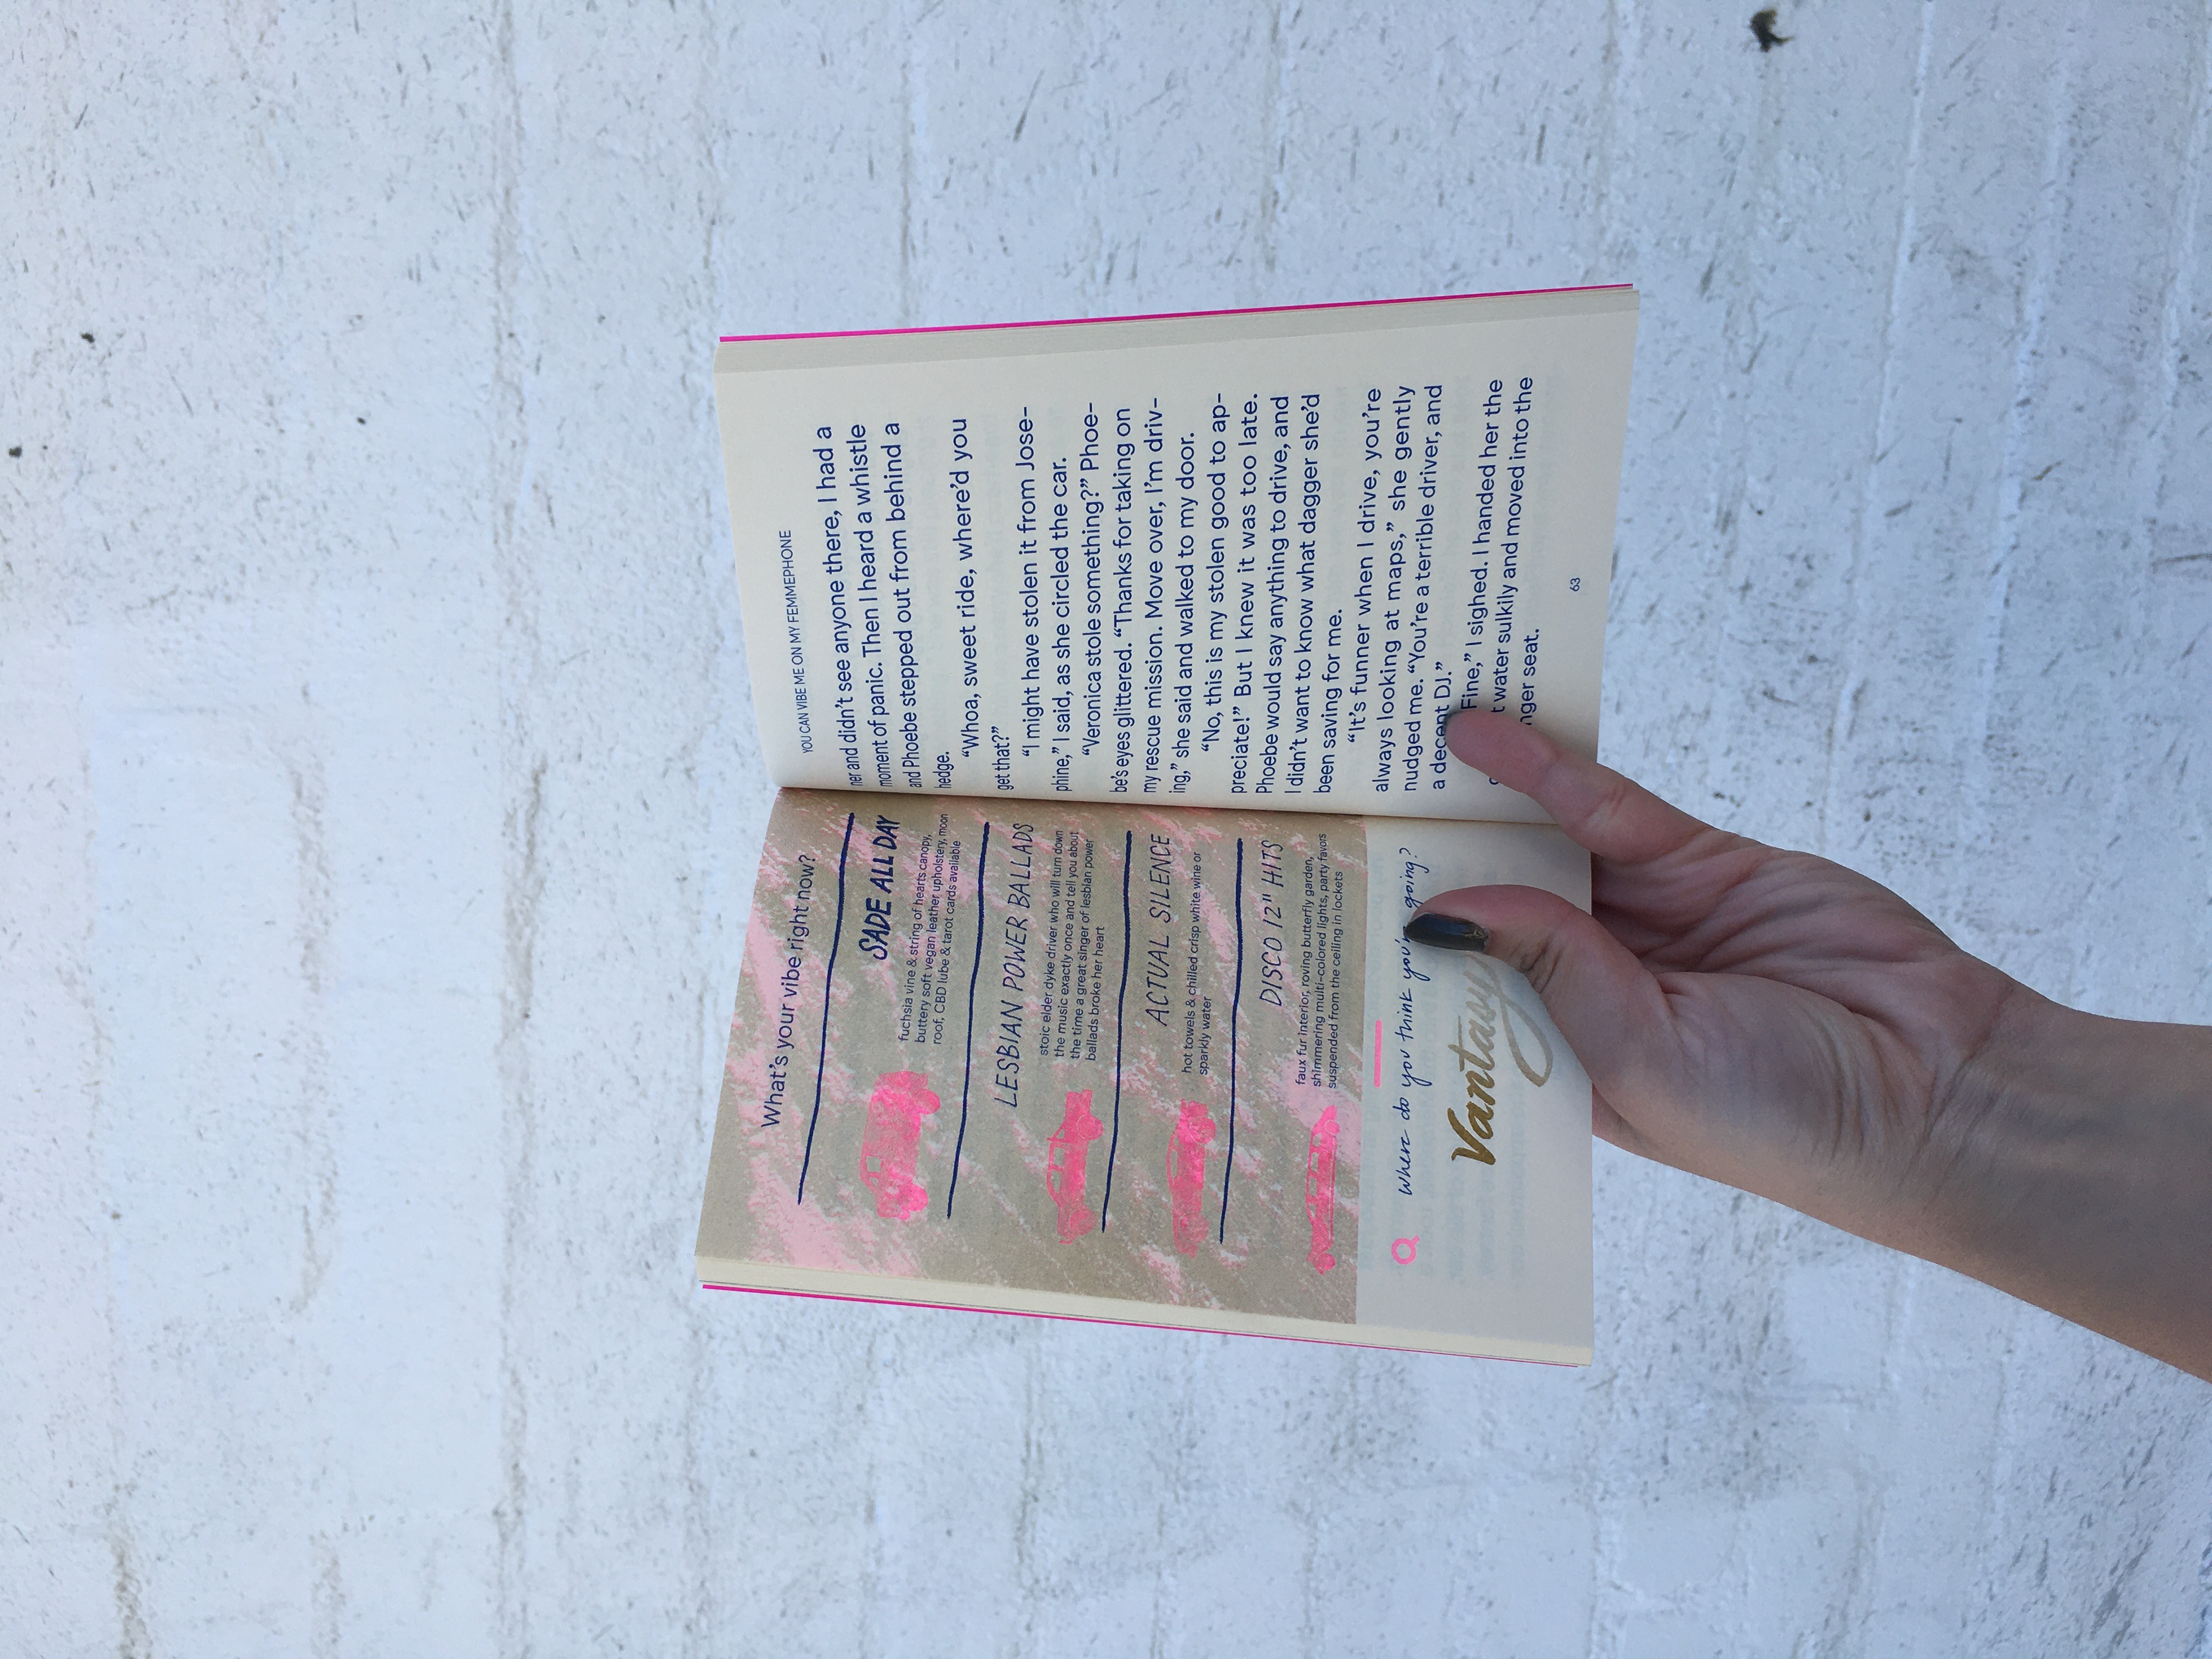 What's your vibe right now?
SADE ALL DAY
fuchsia vine & string of hearts canopy,
buttery soft vegan leather upholstery, moon
roof, CBD lube & tarot cards available
LESBIAN POWER BALLADS
stoic elder dyke driver who will turn down
the music exactly once and tell you about
the time a great singer of lesbian power
ballads broke her heart
ACTUAL SILENCE
hot towels & chilled crisp white wine or
sparkly water
DISCO 12" HITS
faux fur interior, roving butterfly garden,
shimmering multi-colored lights, party favors
suspended from the ceiling in lockets
Where do you think you're going?
Vantasy
YOU CAN VIBE ME ON MY FEMMEPHONE
ner and didn't see anyone there, I had a
moment of panic. Then I heard a whistle
and Phoebe stepped out from behind a
hedge.
“Whoa, sweet ride, where'd you
get that?”
“I might have stolen it from Jose-
phine,” I said, as she circled the car.
“Veronica stole something?” Phoe-
be's eyes glittered. “Thanks for taking on
my rescue mission. Move over, I'm driv-
ing,” she said and walked to my door.
“No, this is my stolen good to ap-
preciate!” But I knew it was too late.
Phoebe would say anything to drive, and
I didn't want to know what dagger she'd
been saving for me.
“It's funner when I drive, you're
always looking at maps,” she gently
nudged me. “You're a terrible driver, and
a decent DJ.”
Fine,” I sighed. I handed her the
t water sulkily and moved into the
nger seat.
63